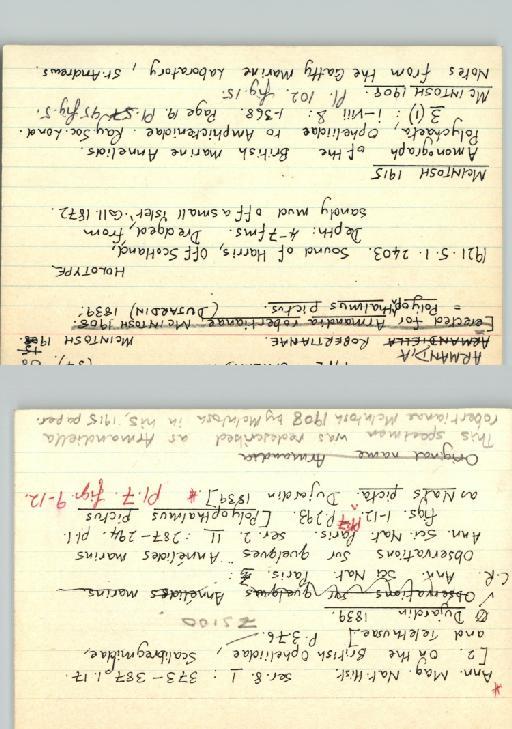 ARMANDIA
ARMANDIELLA ROBERTIANAE. McINTOSH 1908
[Erected for Armandia robertianae McIntosh 1908
= Polyopthalmus pictus. (DUJARDIN) 1839.
HOLOTYPE
1921.5.1.2403. Sound of Harris, off Scotland,
Depth: 4-7fms. Dredged from,
sandy mud off a small islet. Coll. 1872.
McINTOSH 1915
A monograph of the British Marine Annelids.
Polychaeta, Opheliidae to Amphictenidae. Ray. Soc. Lond.
3 (1): i-viii & : 1-368. Page 19. Pl. 95 fig. 5.
Pl. 102. fig. 15.
McINTOSH 1908.
Notes from the Gatty Marine Laboratory, St. Andrews.
Ann. Mag. Nat. Hist. ser. 8. 1 : 373-387 pl. 17.
[2. On the British Opheliidae, Scalibregmidae,
and Telethusae] P. 376.
Dujardin 1839. 75100
Observations sur quelques Annélides marins
C.R. Ann. Sci Nat. Paris.
Observations sur quelques "Annélides marins
Ann. Sci Nat Paris. ser. 2. 11 : 287-294. pl.
figs. 1-12. P 293. [Polyopthalmus pictus
as Naïs picta. Dujardin 1839]. * Pl. 7 figs. 9-12.
Original name Armandia
This specimen was redescribed as Armandiella
robertianae McIntosh 1908 by McIntosh in his, 1915 paper.